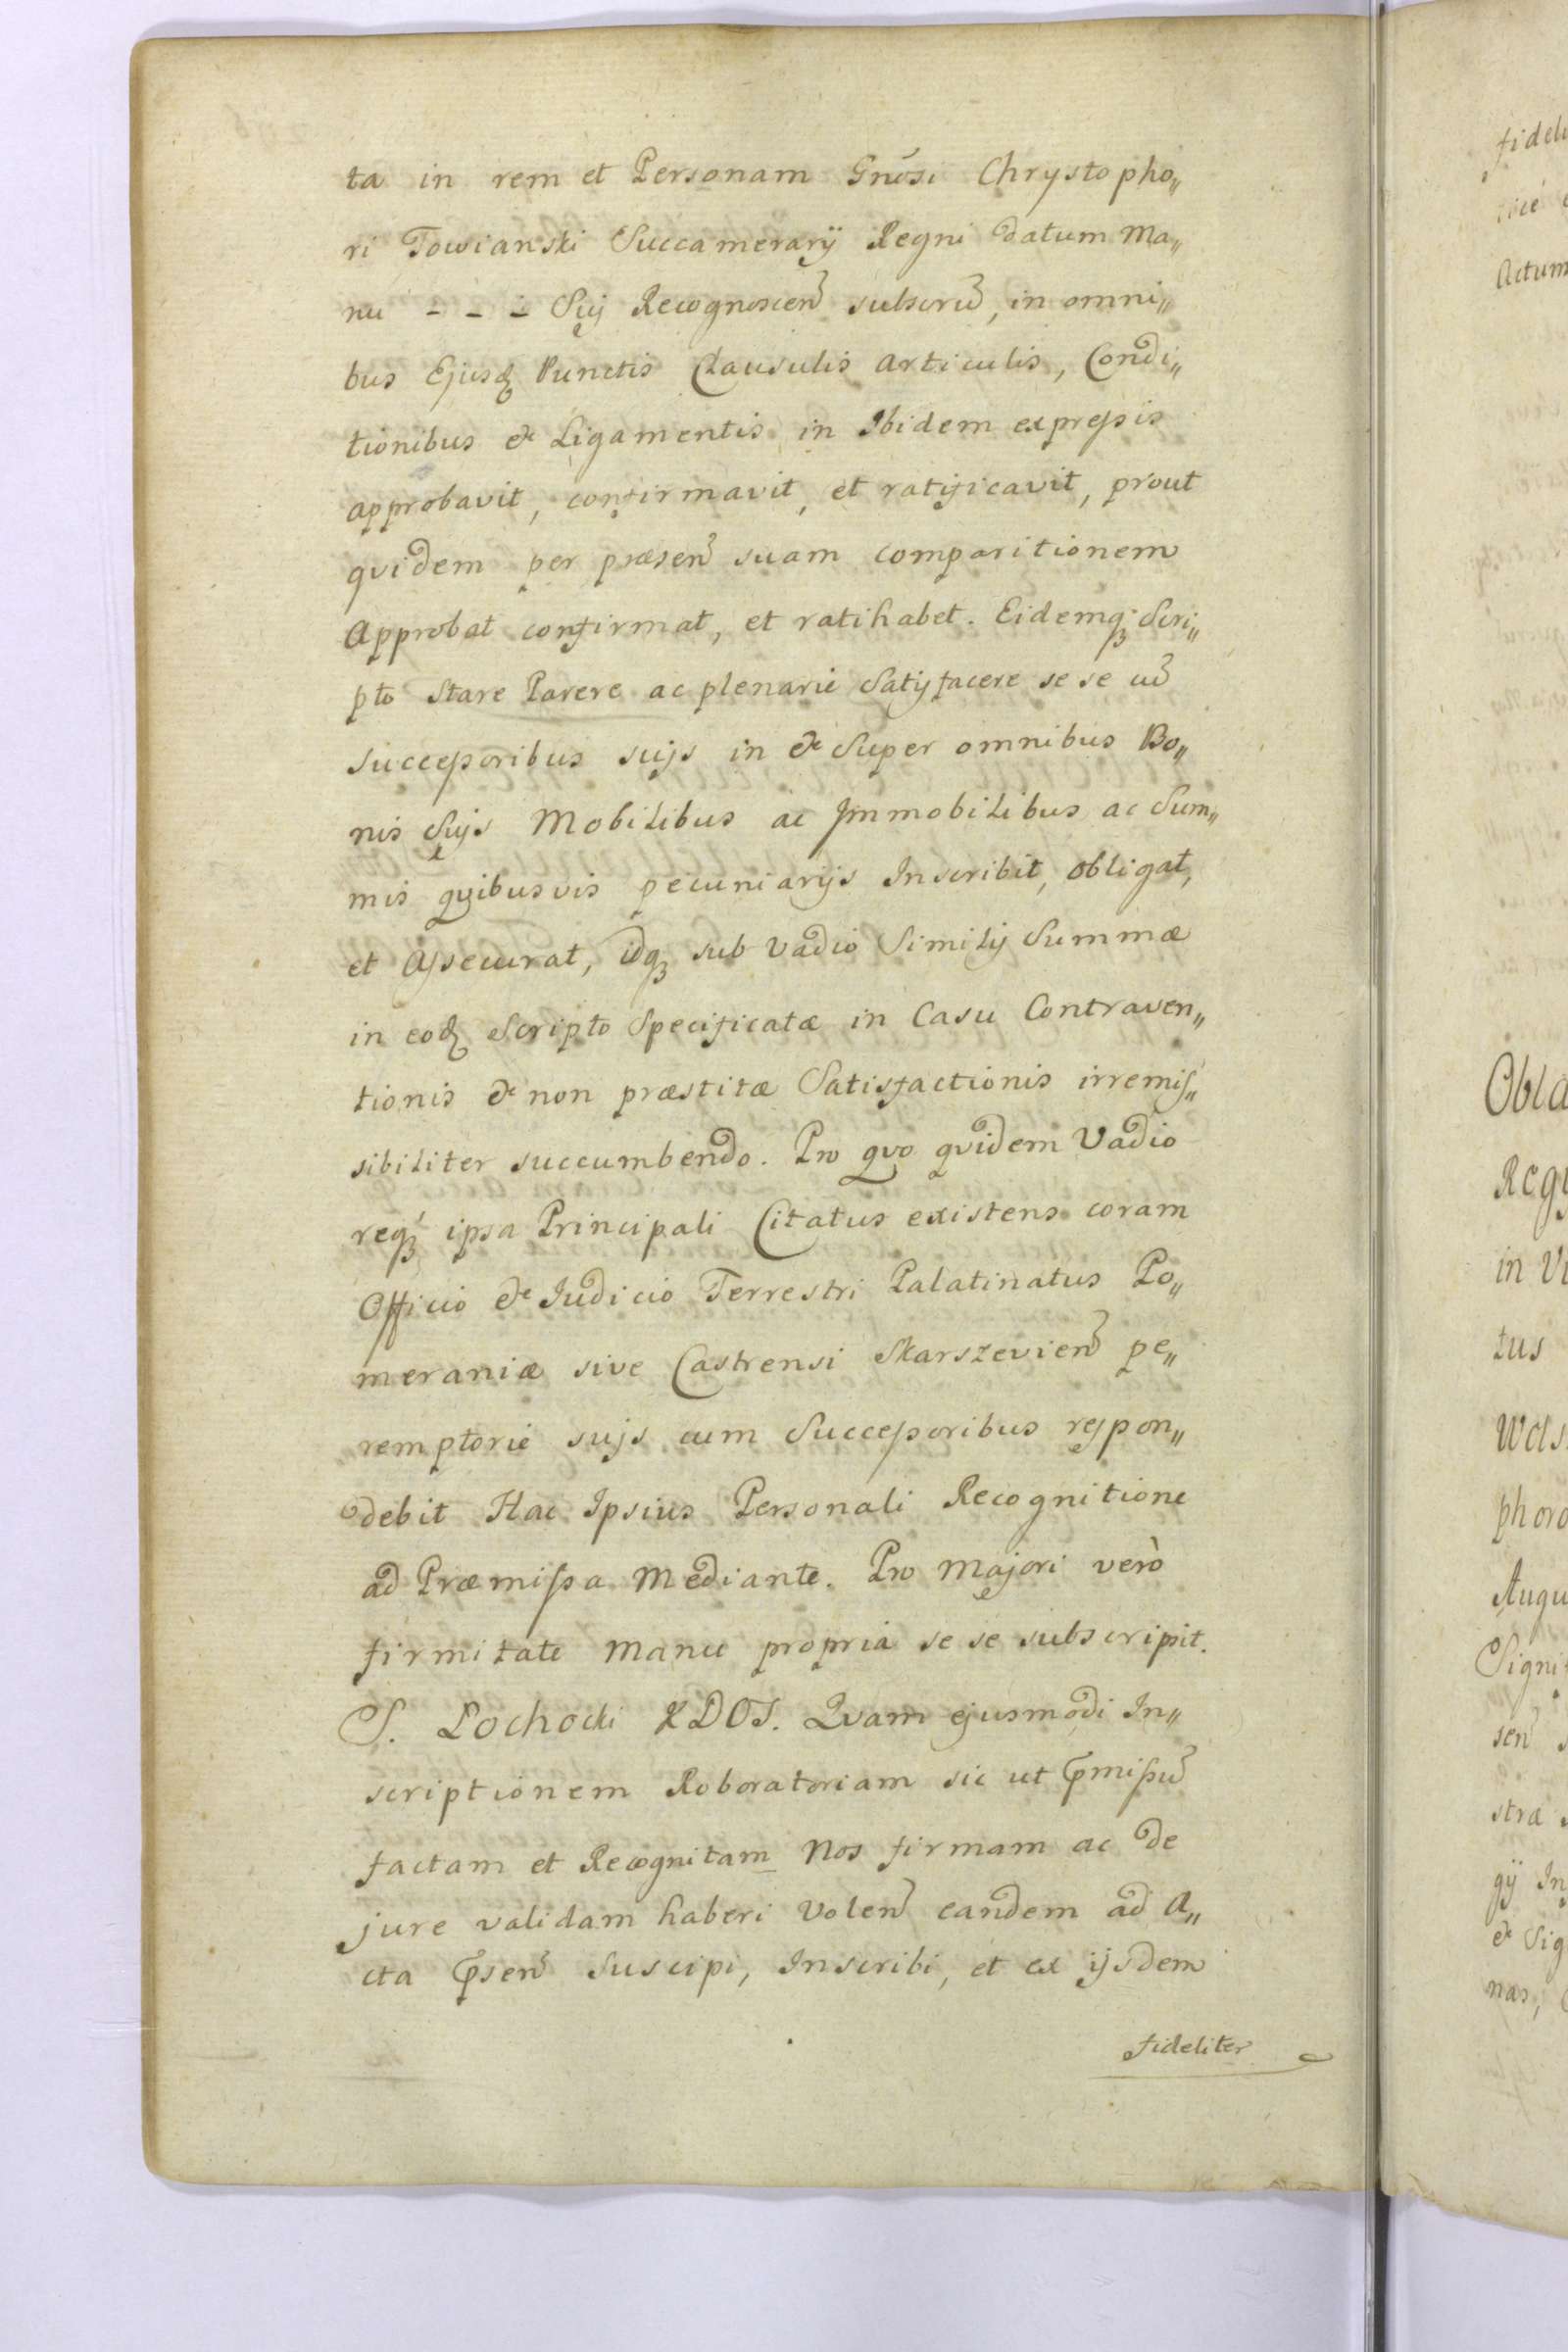 ta in rem et Personam Gnõsi Chrystopho„
ri Towianski Succamerarÿ Regni datum Ma„
nu - - - Suj Recognoscen̄ subscru͞, in omni„
bus Ejusq̨ Punctis Clausulis Articulis, Condi„
tionibus & Ligamentis in Ibidem expressis
approbavit, confirmavit, et ratificavit, prout
quidem per præsen̄ suam comparitionem
Approbat confirmat, et ratihabet. Eidemqꝫ Scri„
pto Stare Parere ac plenarie Satisfacere se se cu͞
successoribus suis in & Super omnibus Bo„
nis Suis Mobilibus ac Immobilibus ac Sum„
mis quibusvis pecuniarijs Inscribit, obligat,
et Assecurat, idqꝫ sub Vadio Similis Summæ
in eodꝫ Scripto Specificatæ in Casu Contraven„
tionis & non præstitæ Satisfactionis irremis„
sibiliter succumbendo. Pro quo quidem Vadio
reqꝫ ipsa Principali Citatus existens coram
Officio & Iudicio Terrestri Palatinatus Po„
meraniæ sive Castrensi Skarszevien̄ pe„
remptorie suis cum Successoribus respon„
debit Hac Ipsius Personali Recognitione
ad Præmissa Mediante. Pro Majori verò
firmitate Manu propria se se subscripsit.
S. Lochocki KDOS. Quam ejusmodi In„
scriptionem Roboratoriam sic ut P̄missu͞
factam et Recognitam Nos firmam ac de
jure validam haberi Volen̄ eandem ad A„
cta P̄sen̄ Suscipi, Inscribi, et ex ijsdem
fideliter
fideli
Actum
Obla
Requ
in Vi
tus
Wels
phoro
Augu
Signi
sen̄ s
stræ
gÿ In
& Sig
nas,